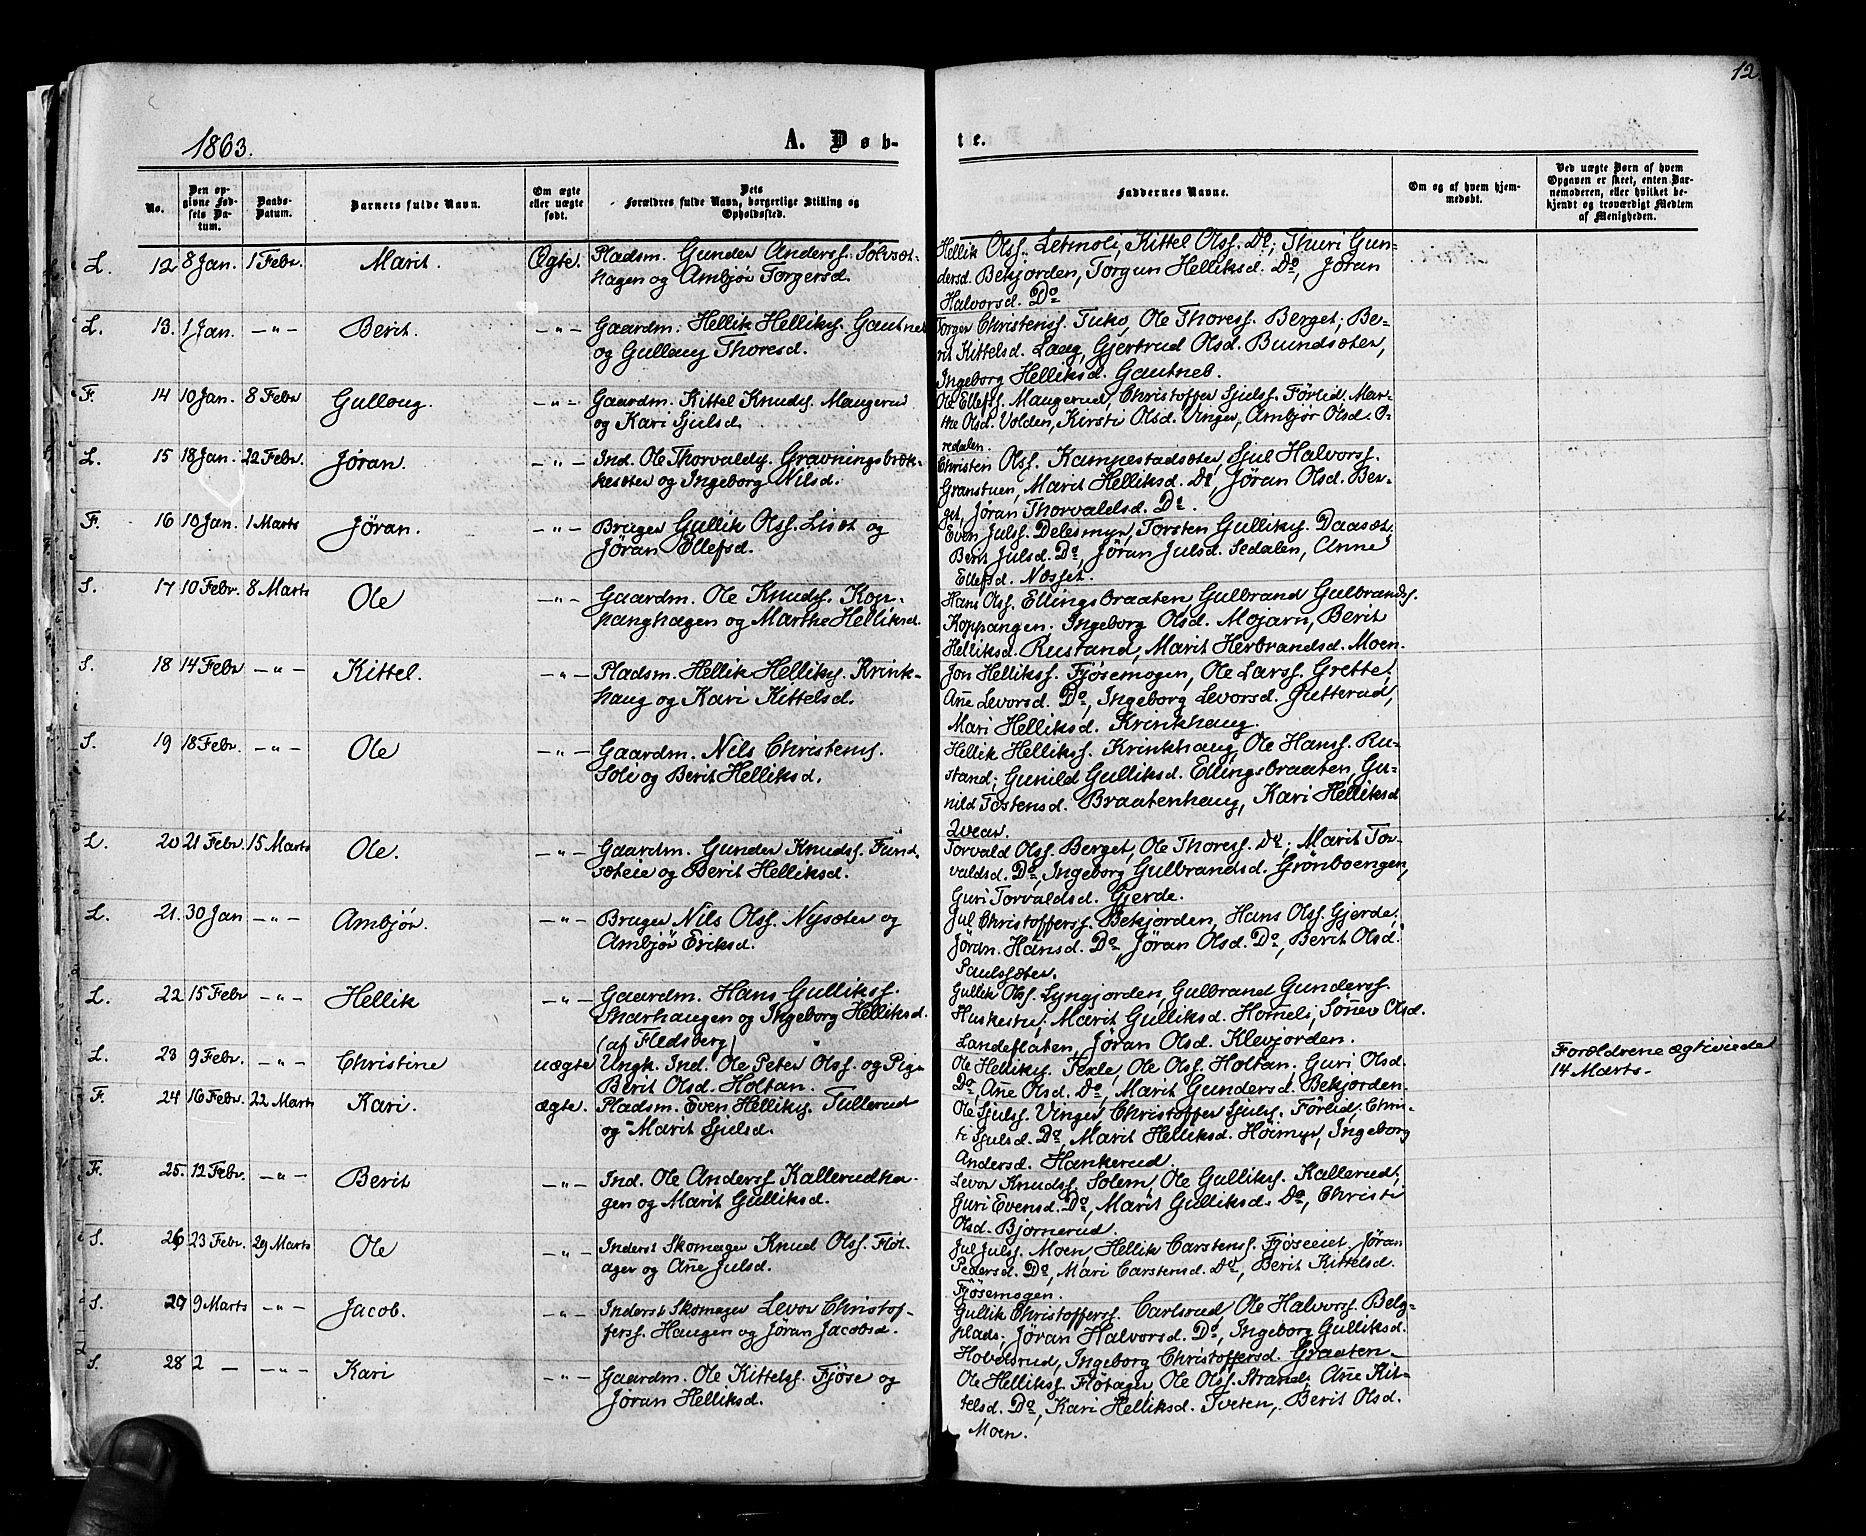 12
1863.
A. Døb-
te.
No.
Den op-
givne Fød-
sels Da-
tum.
Daabs-
Datum.
Barnets fulde Navn.
Om ægte
eller uægte
født.
Dets
Forældres fulde Navn, borgerlige Stilling og
Opholdssted.
Faddernes Navne.
Om og af hvem hjem-
medøbt.
Ved uægte Børn af hvem
Opgaven er skeet, enten Bar-
nemoderen, eller hvilket be-
kjendt og troværdigt Medlem
af Menigheden.
L. 12 8 Jan. 1 Febr. Marit. Ægte. Pladsm. Gunder Anderss. Sølvsæt-
hagen og Ambjør Torgersd.
Hellik Olss. Letmoli, Kittel Olss. Do; Thuri Gun-
dersd. Bekjorden, Torgun Helliksd. Do, Jøran
Halvorsd. Do
L. 13. 1 Jan. —"— Berit. —"— Gaardm. Hellik Helliks. Gautneb
og Gullaug Thoresd.
Torger Christens. Tuko, Ole Thoress. Berget; Be-
rit Kittelsd. Laug, Gjertrud Olsd. Buindsæter,
Ingeborg Helliksd. Gautneb.
F. 14 10 Jan. 8 Febr Gulloug. —"— Gaardm. Kittel Knuds. Maugerud
og Kari Sjulsd.
Ole Ellefss. Maugerud, Christoffer Sjulss. Førlid, Mar-
the Olsd. Volden, Kirsti Olsd. Vinger, Ambjør Olsd. O-
redalen.
L. 15 18 Jan. 22 Febr. Jøran. —"— Ind. Ole Thorvalds. Gravningsbræk-
kesæter og Ingeborg Nilsd.
Christen Olss. Kampestadsæter, Sjul Halvorss.
Granstuen, Marit Helliksd. Do, Jøran Olsd. Ber-
get, Jøran Thorvaldsd. Do.
F. 16 10 Jan. 1 Marts Jøran. —"— Bruger Gullik Olss. Liset og
Jøran Ellefsd.
Even Julss. Delesmyr, Torsten Gulliks. Daaset,
Berit Julsd. Do, Jøran Julsd. Sedalen, Anne
Ellefsd. Næsset.
S. 17 10 Febr. 8 Marts Ole —"— Gaardm. Ole Knuds. Kop-
hanghagen og Marthe Helliksd.
Hans Olss. Ellingsbraaten, Gulbrand Gulbrands.
Koppangen. Ingeborg Olsd. Mojarn, Berit
Helliksd. Rustand, Marit Herbrandsd. Moen.
S. 18 14 Febr —"— Kittel. —"— Pladsm. Hellik Helliks. Krink-
haug og Kari Kittelsd.
Jon Hellikss. Fjøsemogen, Ole Larss. Grette,
Ane Levorsd. Do, Ingeborg Levorsd. Putterud,
Mari Helliksd. Krinkhaug.
S. 19 18 Febr. —"— Ole —"— Gaardm. Nils Christens.
Soli og Berit Helliksd.
Hellik Hellikss. Krinkhaug, Ole Hanss. Ru-
stand; Gunild Gulliksd. Ellingsbraaten, Gu-
nild Tostensd. Braatenhaug, Kari Helliksd
Qvear.
L. 20 21 Febr. 15 Marts Ole. —"— Gaardm. Gunder Knudss. Fund-
sæteie og Berit Helliksd.
Torvald Olss. Berget, Ole Thoress. Do; Marit Tor-
valdsd. Do, Ingeborg Gulbrandsd. Grønboengen,
Guri Torvaldsd. Gjerde.
L. 21. 30 Jan —"— Ambjør. —"— Bruger Nils Olss. Nysæter og
Ambjør Eriksd.
Jul Christofferss. Bekjorden, Hans Olss. Gjerde,
Jøran Hansd. Do, Jøran Olsd. Do, Berit Olsd.
Paulssæter.
L. 22 15 Febr —"— Hellik —"— Gaardm. Hans Gullikss.
Snarhaugen og Ingeborg Helliksd.
(af Flesberg)
Gullik Olss. Lyngjorden, Gulbrand Gunderss.
Huskestu; Marit Gulliksd. Homels, Sønev Olsd.
Landeflaten, Jøran Olsd. Klevjorden.
L. 23 9 Febr. —"— Christine uægte Ungk. Ind. Ole Peter Olss. og Pige
Berit Olsd. Holtan.
Ole Helliks. Texle, Ole Olss. Holtan, Guri Olsd.
Do, Ane Olsd. Do, Marit Gundersd. Bekjorden
Forældrene ægteviede
14 Marts.
F. 24 16 Febr. 22 Marts Kari. ægte. Pladsm. Even Helliks. Tullerud
og Marit Sjulsd.
Ole Sjulss. Vinger, Christoffer Sjuls. Førlid, Chri-
sti Sjulsd. Do, Marit Helliksd. Høimyr, Ingeborg
Andersd. Hankerud.
F. 25. 12 Febr. —"— Berit —"— Ind. Ole Anderss. Kallerudha-
gen og Marit Gulliksd.
Levor Knudss. Solem, Ole Gulliks. Kallerud,
Guri Evensd. Do, Marit Gulliksd. Do, Christi
Olsd. Bjørnerud.
S. 26 23 Febr. 29 Marts Ole —"— Inderst Skomager Knud Olss. Fløt-
ager og Ane Julsd.
Jul Julss. Moen, Hellik Carstenss. Fjøseeiet, Jøran
Pedersd. Do, Mari Carstensd. Do, Berit Kittelsd.
Fjøsemogen.
S. 27 9 Marts —"— Jacob. —"— Inderst Skomager Levor Christof-
ferss. Haugen og Jøran Jacobsd.
Gullik Christofferss. Carlsrud, Ole Halvorss. Belg-
plads; Jøran Halvorsd. Do, Ingeborg Gulliksd.
Hovelsrud, Ingeborg Christoffersd. Graaten-
S. 28 2 — —"— Kari —"— Gaardm. Ole Kittelss. Fjøse og
Jøran Helliksd.
Ole Hellikss. Fløtager, Ole Olss. Strand, Ane Kit-
telsd. Do, Kari Helliksd. Tveten, Berit Olsd.
Moen.